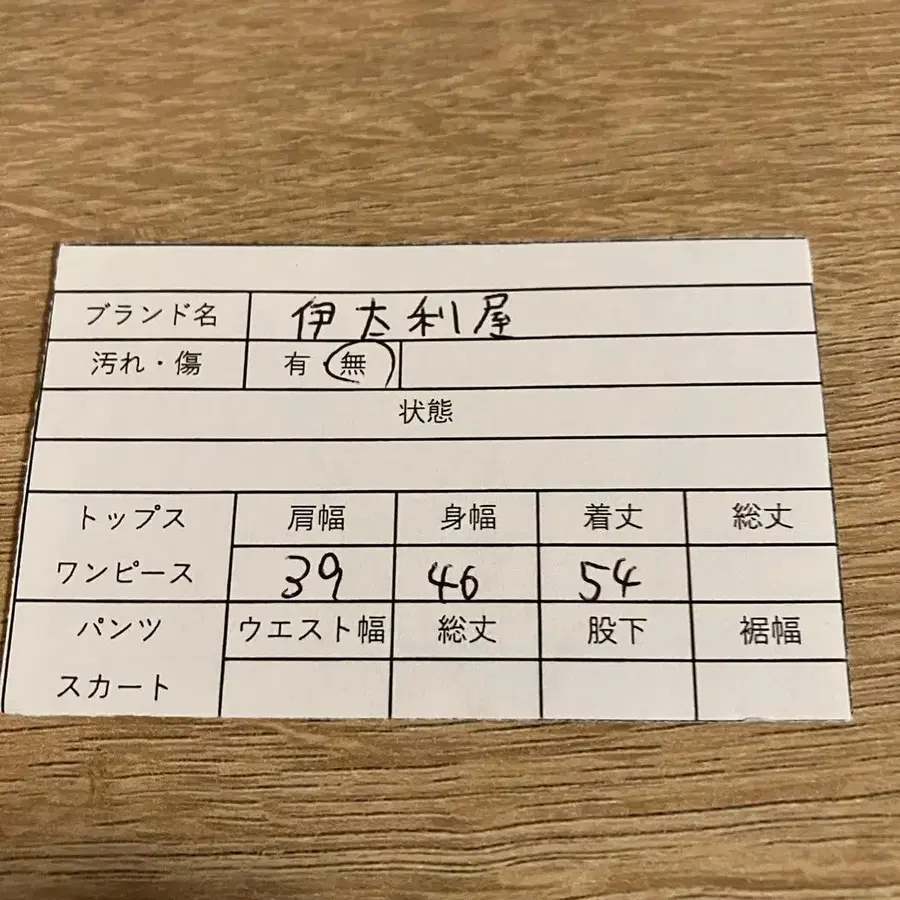 ブランド名 伊太利屋
汚れ・傷 有・無
状態
トップス 肩幅 身幅 着丈 総丈
ワンピース 39 46 54
パンツ ウエスト幅 総丈 股下 裾幅
スカート